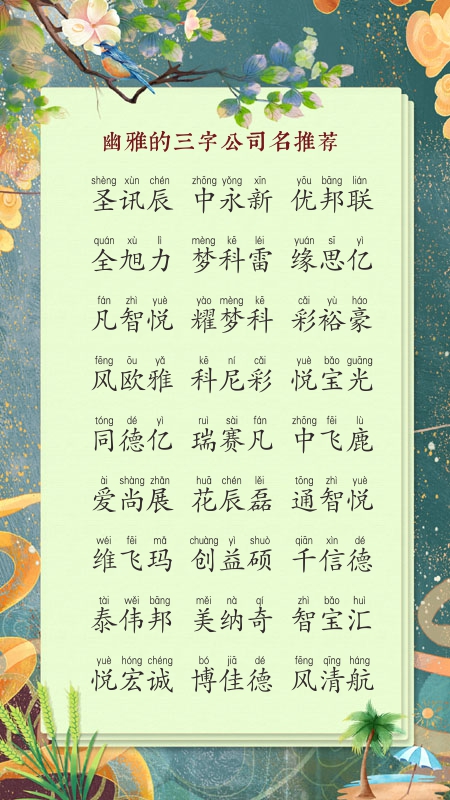 幽雅的三字公司名推荐
shèng xùn chén zhōng yǒng xīn yōu bāng lián
圣讯辰 中永新 优邦联
quán xù lì mèng kē léi yuán sī yì
全旭力 梦科雷 缘思亿
fán zhì yuè yào mèng kē cǎi yù háo
凡智悦 耀梦科 彩裕豪
fēng ōu yǎ kē ní cǎi yuè bǎo guāng
风欧雅 科尼彩 悦宝光
tóng dé yì ruì sài fán zhōng fēi lù
同德亿 瑞赛凡 中飞鹿
ài shàng zhǎn huā chén lěi tōng zhì yuè
爱尚展 花辰磊 通智悦
wéi fēi mǎ chuàng yì shuò qiān xìn dé
维飞玛 创益硕 千信德
tài wěi bāng měi nà qí zhì bǎo huì
泰伟邦 美纳奇 智宝汇
yuè hóng chéng bó jiā dé fēng qīng háng
悦宏诚 博佳德 风清航